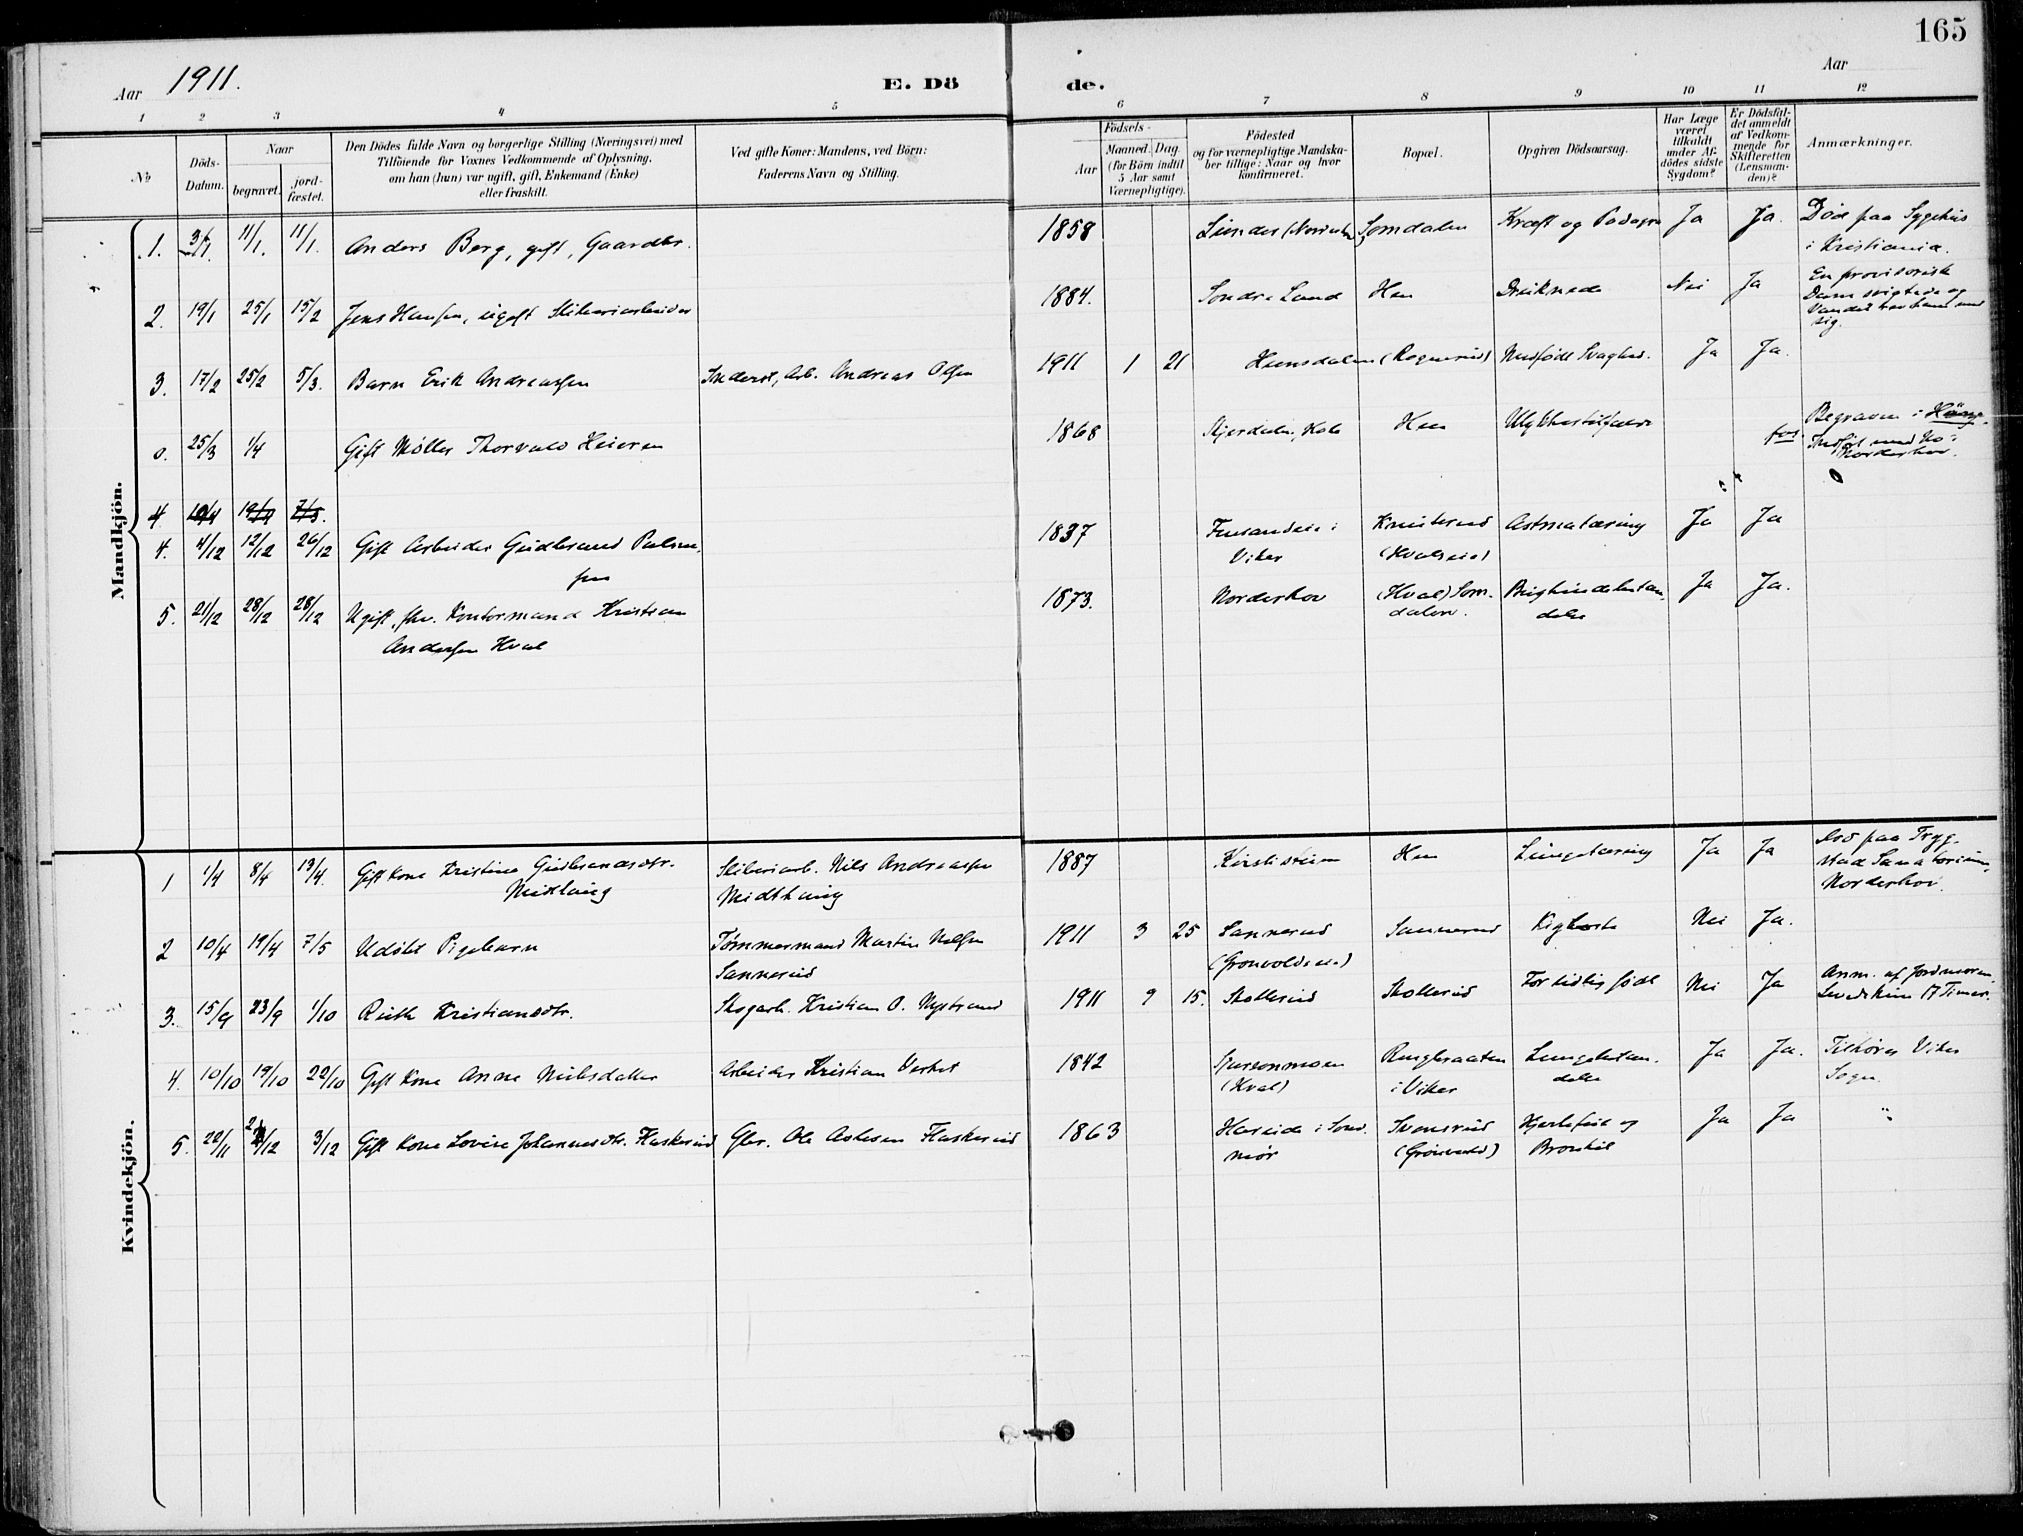 165
Aar 1911.
E. Dö de.
Aar
1 2 3 4 5 6 7 8 9 10 11 12
№
Döds-Datum.
Naar
begravet.
jord-fæstet.
Den Dödes fulde Navn og borgerlige Stilling (Næringsvei) med
Tilföiende for Voxnes Vedkommende af Oplysning,
om han (hun) var ugift, gift, Enkemand (Enke)
eller fraskilt.
Ved gifte Koner: Mandens, ved Börn:
Faderens Navn og Stilling.
Födsels-
Aar
Maaned. Dag
(for Börn indtil
5 Aar samt
Værnepligtige).
Födested
og for værnepligtige Mandska-
ber tillige: Naar og hvor
konfirmeret.
Bopæl.
Opgiven Dödsaarsag.
Har Læge
været
tilkaldt
under Af-
dödes sidste
Sygdom?
Er Dödsfal-
det anmeldt
af Vedkom-
mende for
Skifteretten
(Lensman-
den)?
Anmærkninger.
Mandkjön.
1. 3/1 11/1. 11/1. Anders Berg, gift, Gaardbr. 1858 Somdalen Kræft og Podagra Ja Ja. Død paa Sygehus
i Kristiania.
2. 19/1 25/1 15/2 Jens Hansen, ugift 1884. Søndre Land Hen Druknede Nei Ja En provisorisk
Dam svigtede og
Vandet tog ham med
sig.
3. 17/2 25/2 5/3. Barn Erik Andreassen Inderst, Arb. Andreas Olsen 1911 1 21 (Rognerud) Medfødt Svaghed. Ja Ja.
0. 25/3 1/4 Gift Møller Thorvald Heieren 1868 Hole Hen Ulykkestilfælde Begraven i
Indført med No i
Norderhov.
4 10/4 19/4 7/5.
4. 4/12 12/12 26/12 Gift Arbeider Gudbrand Paulsen 1837 Finsandeie i
Viker Knesterud
(Hvalseie) Astmatæring Ja Ja
5. 21/12 28/12 28/12 Ugift, fhv. Kontormand Kristian
Andersen Hval 1873. Norderhov (Hval) Som-
dalen. Ja Ja.
Kvindekjön.
1 1/4 8/4 17/4. Gift Kone Kristine Gudbrandsdtr.
Midthaug Sliberiarb. Nils Andreassen
Midthaug 1887 Hen Lungetæring Ja Ja Død paa Tryg-
stad Sanatorium,
Norderhov.
2 10/4 19/4 7/5 Udøbt Pigebarn Tømmermand Martin Nilsen
Sannerud 1911 3 25 Sannerud
(Grønvoldseie) Sannerud Kighoste Nei Ja.
3. 15/9 23/9 1/10 Ruth Kristiansdtr. Skogarb. Kristian O. Nystrand 1911 9 15. Skollerud Skollerud For tidlig født Nei Ja Anm. af Jordmoren.
Levede kun 17 Timer.
4. 10/10 19/10 22/10 Gift Kone Anne Nilsdatter Arbeider Kristian Verket 1842 (Hval) Ringbraaten
i Viker Lungebetæn-
delse Ja Ja. Tilhører Viker
Sogn.
5. 22/11 2/12 3/12 Gift Kone Lovise Johannesdtr. Flaskerud Gbr. Ole Flaskerud 1863 Hareide i Sønd-
mør Svensrud
(Grønvold) Hjertefeil og
Bronkit Ja Ja "